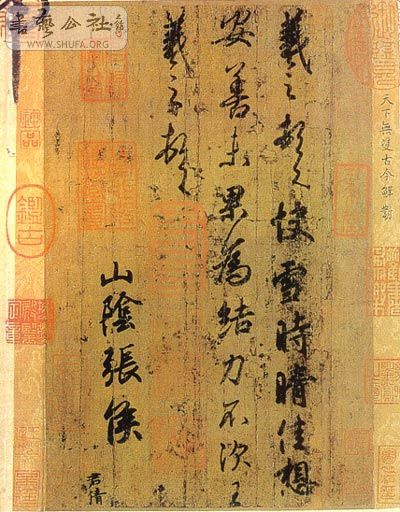 天下無雙古今鮮對
羲之頓首快雪時晴佳想
安善未果為結力不次王
羲之頓首
山陰張侯
君倩
鑑古
神品
書藝公社
WWW.SHUFA.ORG